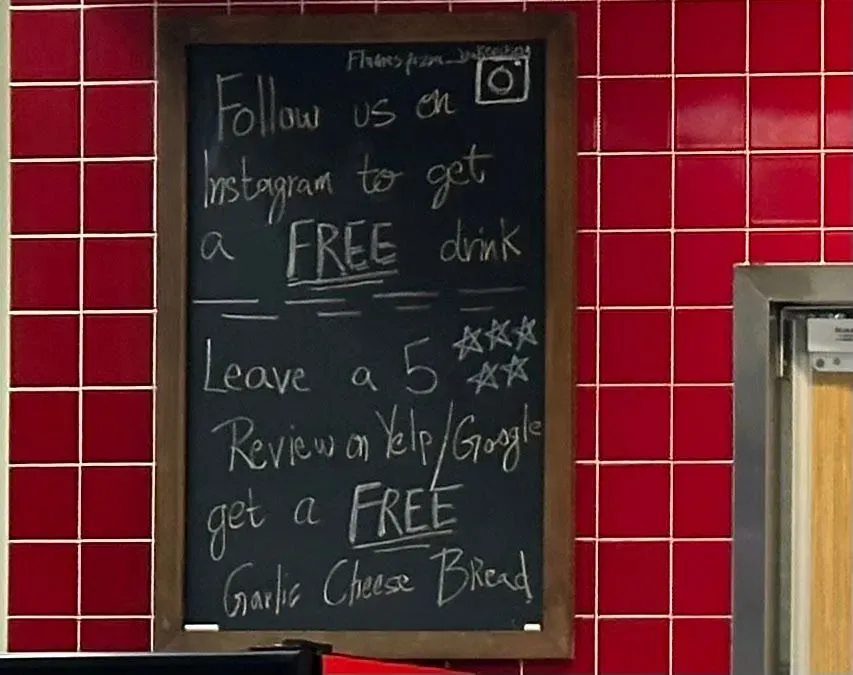 Follow us on
Instagram to get
a FREE drink
Leave a 5
Review on Yelp/Google
get a FREE
Garlic Cheese BRead